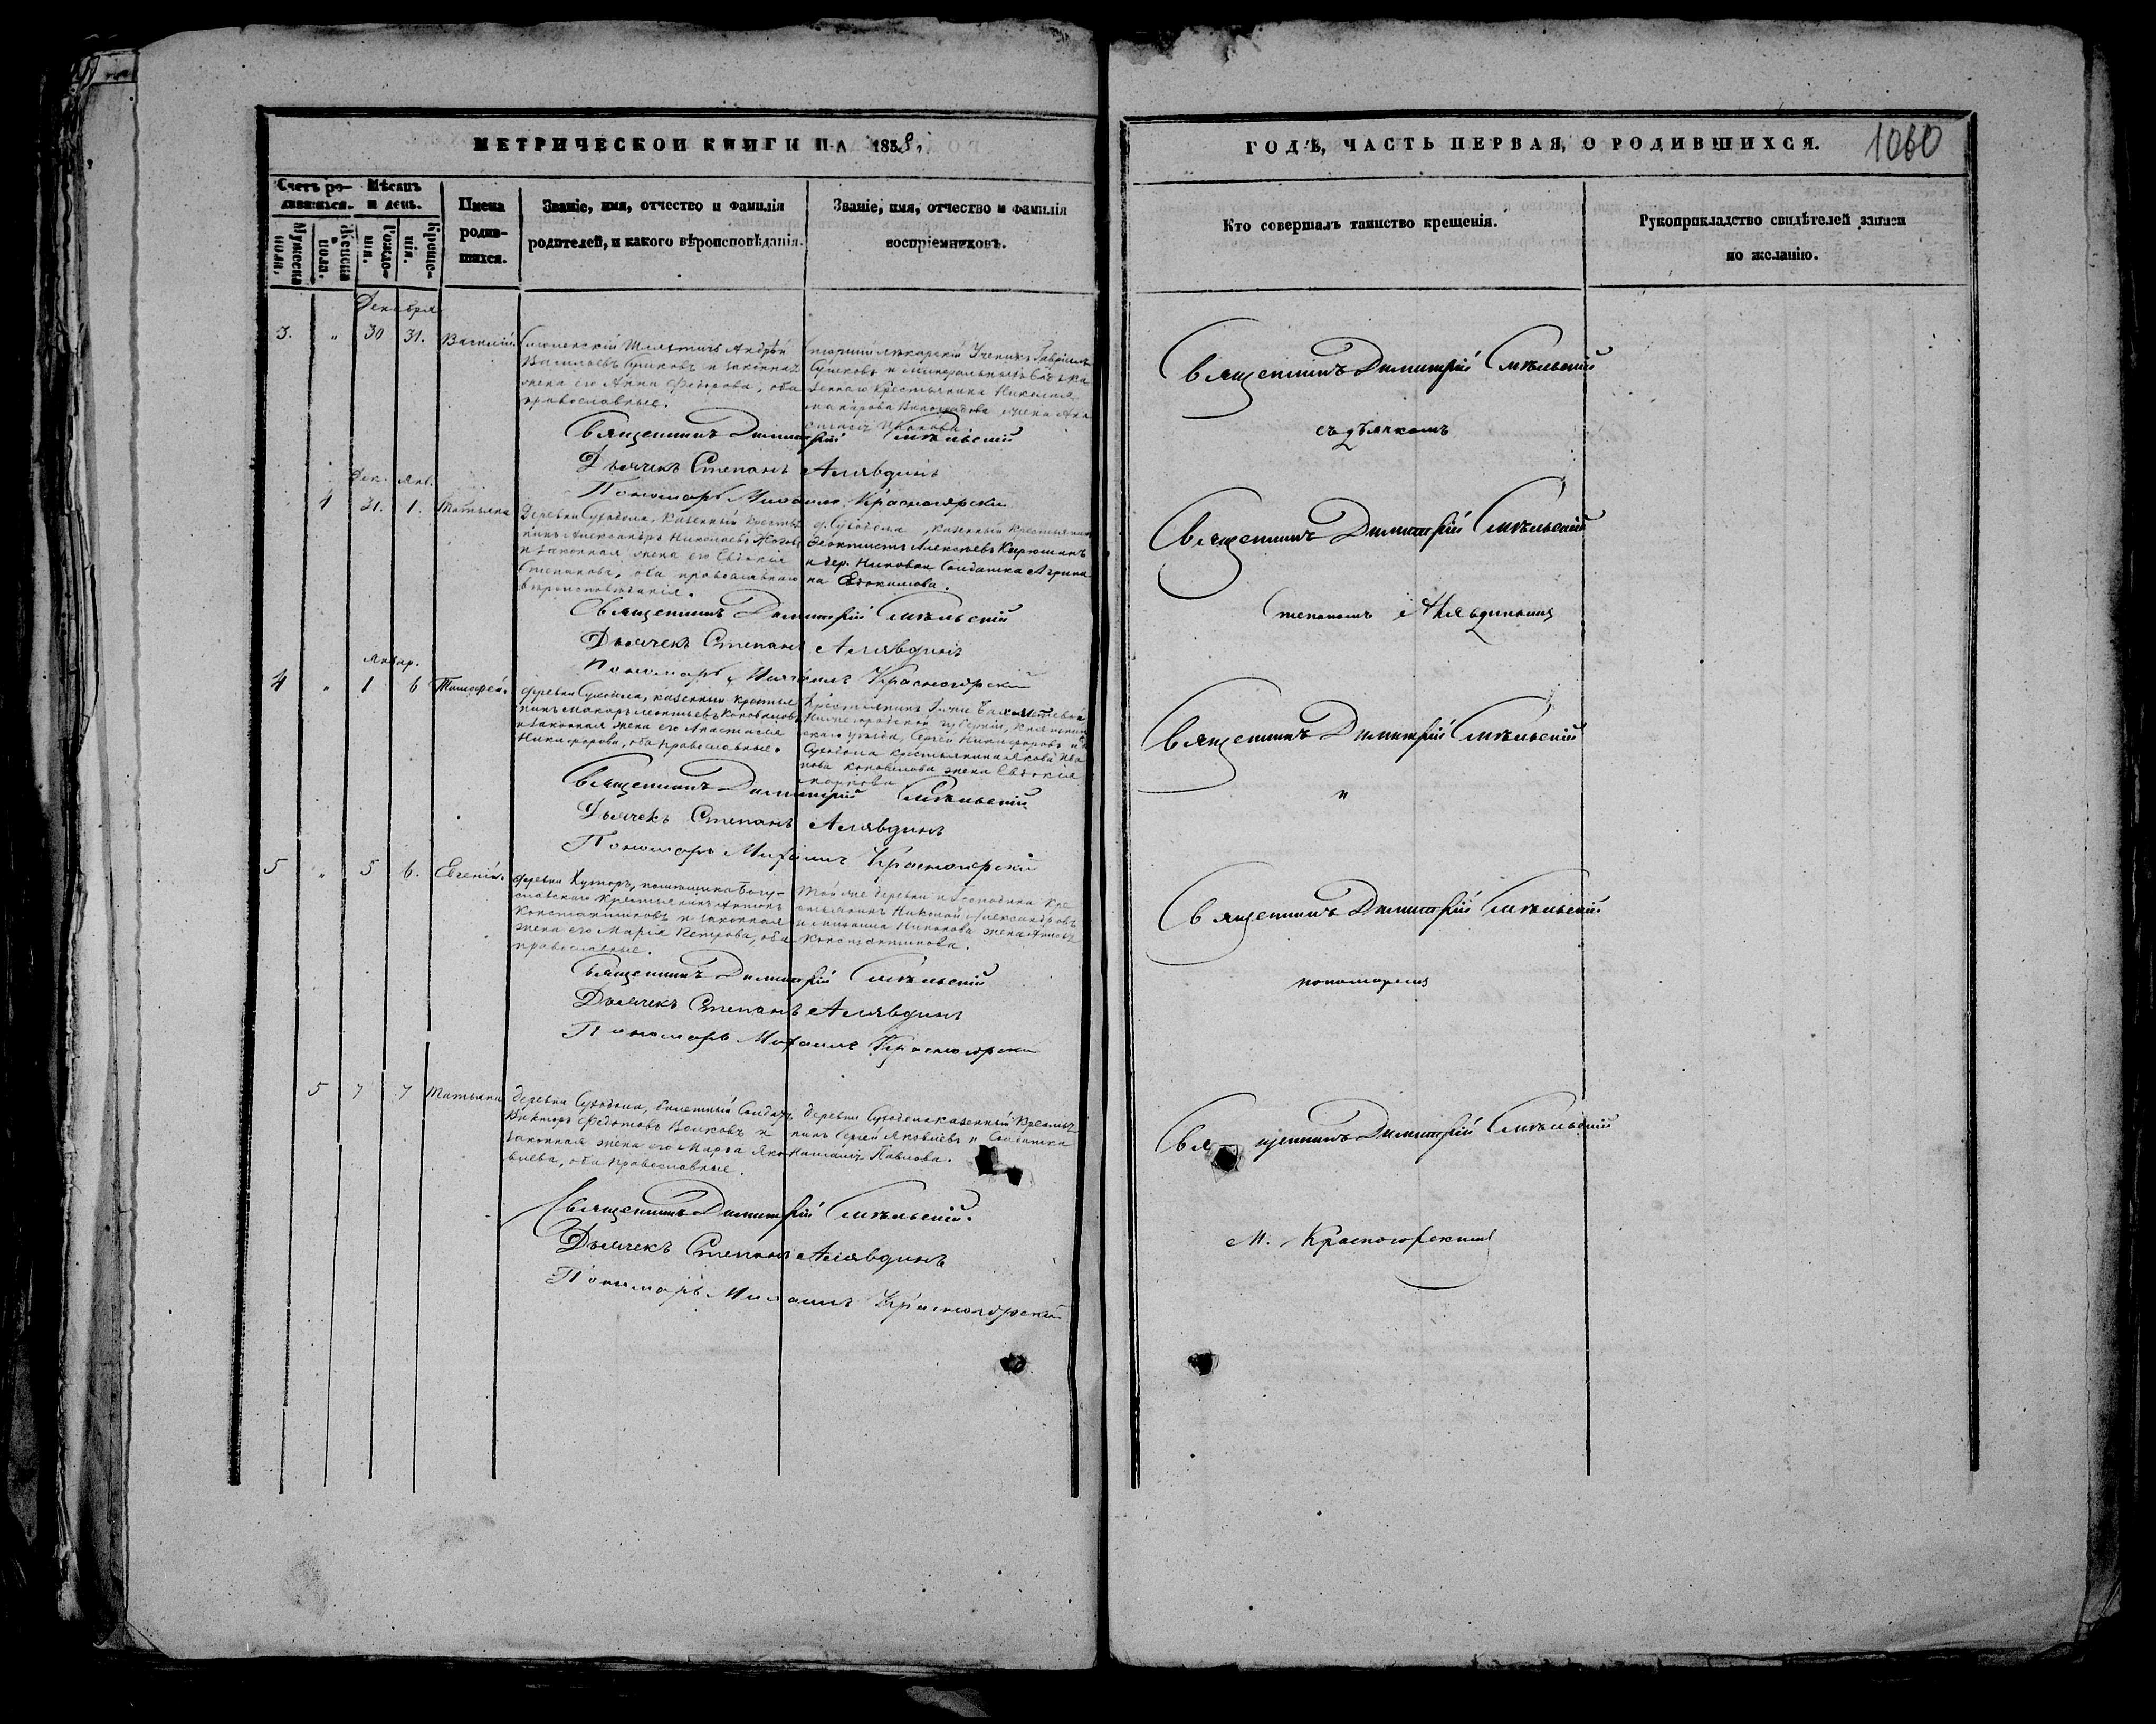 МЕТРИЧЕСКОЙ КНИГИ НА 1858,
Счетъ ро-
дившихся.
Мѣсяцъ
и день.
Мужеска
пола.
Женска
пола.
Рожде-
нія.
Креще-
нія.
Имена
родив-
шихся.
Званіе, имя, отчество и фамилія
родителей, и какого вѣроисповѣданія.
Званіе, имя, отчество и фамилія
воспріемниковъ.
Декабря
3. " 30 31. Василій.
Смоленскій Шляхтичь Андрей
Васильевъ и законная
жена его Анна Федорова, оба
православные.
Ученикъ Гавріилъ
крестьянина Николая
жена
Иванова.
Священникъ Димитрій Смѣльскій
Дьячекъ Степанъ Алявдинъ
Пономарь Михаилъ Красногорскій
Дек. Янв.
4 31. 1. Татьяна
Деревни Суходола, казенный крестья
нинъ Александръ Николаевъ
и законная жена его Евдокія
Степанова, оба православнаго
вѣроисповѣданія.
д. Суходола, казенный крестьянинъ
Феоктистъ Алексѣевъ Кирюшинъ
и дер. Солдатка Агрипи
на Евдокимова.
Священникъ Димитрій Смѣльскій
Дьячекъ Степанъ Алявдинъ
Пономарь Михаилъ Красногорскій
Январ.
4 " 1 6 Тимофей.
деревни Суходола, казенный крестья
нинъ Макаръ Леонтьевъ Коновалов
и законная жена его Анастасія
Никифорова, оба православные.
Крестьянинъ
Нижегородской губерніи,
уѣзда, Сергей Никифоровъ и д.
Суходола крестьянина Якова Ива
нова Коновалова жена Евдокія
Священникъ Димитрій Смѣльскій
Дьячекъ Степанъ Алявдинъ
Пономарь Михаилъ Красногорскій
5 " 5 6. Евгеній.
деревни Хуторъ, помѣщика Богу-
славскаго крестьянинъ Антонъ
Константиновъ и законная
жена его Марія Петрова, оба
православные.
Той же деревни и Господина кре
стьянинъ Николай Александровъ
жена
Константинова.
Священникъ Димитрій Смѣльскій
Дьячекъ Степанъ Алявдинъ
Пономарь Михаилъ Красногорскій
5 7 7 Татьяна
деревни Суходола, билетный Солдатъ
Викторъ Федотовъ Волковъ и
законная жена его Марфа Яко
влева, оба православные.
деревни Суходола казенный крестья
нинъ Сергей Яковлевъ и Солдатка
Наталія Павлова.
Священникъ Димитрій Смѣльскій.
Дьячекъ Степанъ Алявдинъ
Пономарь Михаилъ Красногорскій
ГОДЪ, ЧАСТЬ ПЕРВАЯ, О РОДИВШИХСЯ.
1060
Кто совершалъ таинство крещенія.
Рукоприкладство свидѣтелей записи
по желанію.
Священникъ Димитрій Смѣльскій
съ дьячкомъ
Священникъ Димитрій Смѣльскій
Степаномъ Алявдинымъ
Священникъ Димитрій Смѣльскій
и
Священникъ Димитрій Смѣльскій
пономаремъ
Священникъ Димитрій Смѣльскій
М. Красногорскимъ